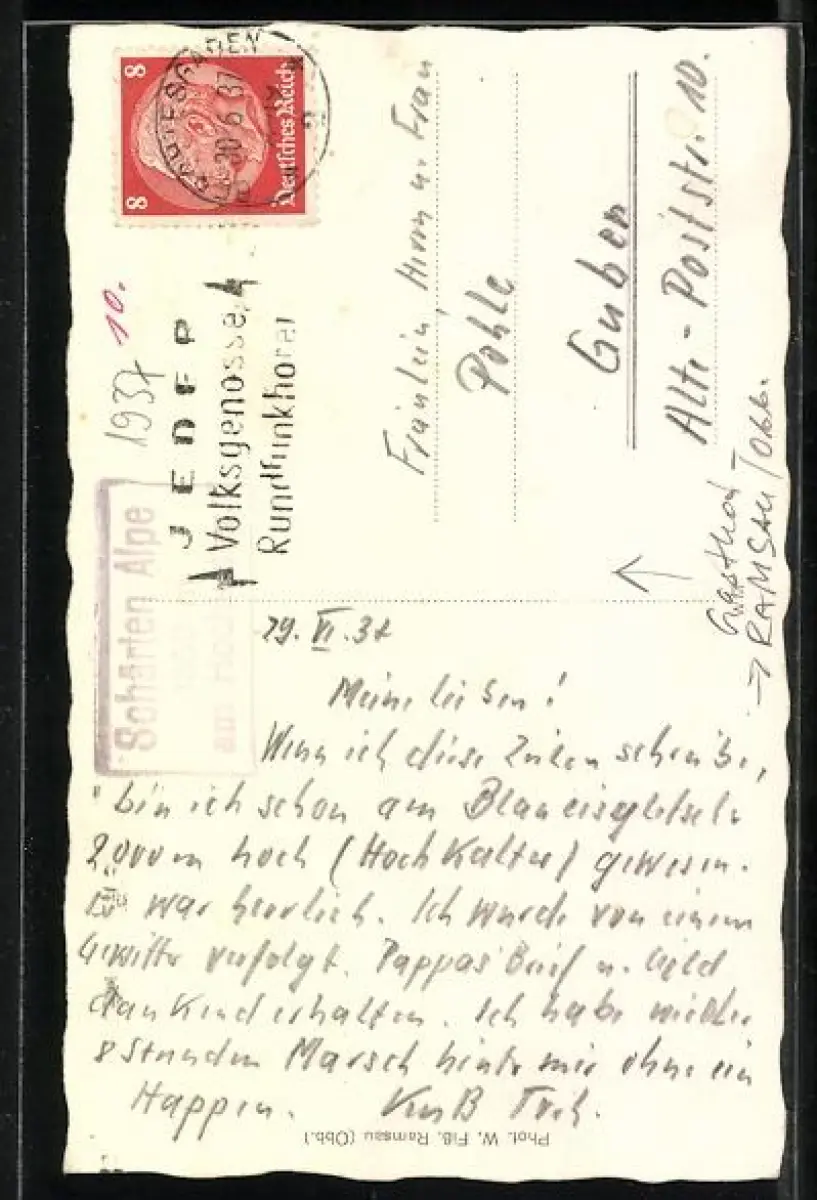 BERCHTESGADEN
30.6.37
8
8
Deutsches Reich
10.
1937
JEDER
Volksgenosse
Rundfunkhörer
Fräulein, Herrn u. Frau
Pohle
Guben
Alte-Poststr. 10.
Gasthof
→ RAMSAU / Obb.
Scharten Alpe
am Hoch
29. VI. 37
Meine lieben!
Wenn ich diese Zeilen schreibe,
bin ich schon am Blaueisgletscher
2000 m hoch (Hochkalter) gewesen.
Es war herrlich. Ich wurde von einem
Gewitter verfolgt. Pappas Brief u. Geld
dankend erhalten. Ich habe wieder
8 Stunden Marsch hinter mir ohne ein
Happen. Kuß
Phot. W. Fiß, Ramsau (Obb.)